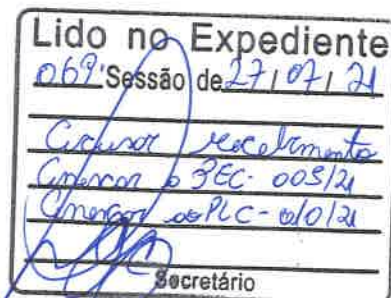 Lido no Expediente
069ª Sessão de 27/07/21
Acusar recebimento
Anexar a PEC-005/21
Anexar ao PLC-010/21
Secretário